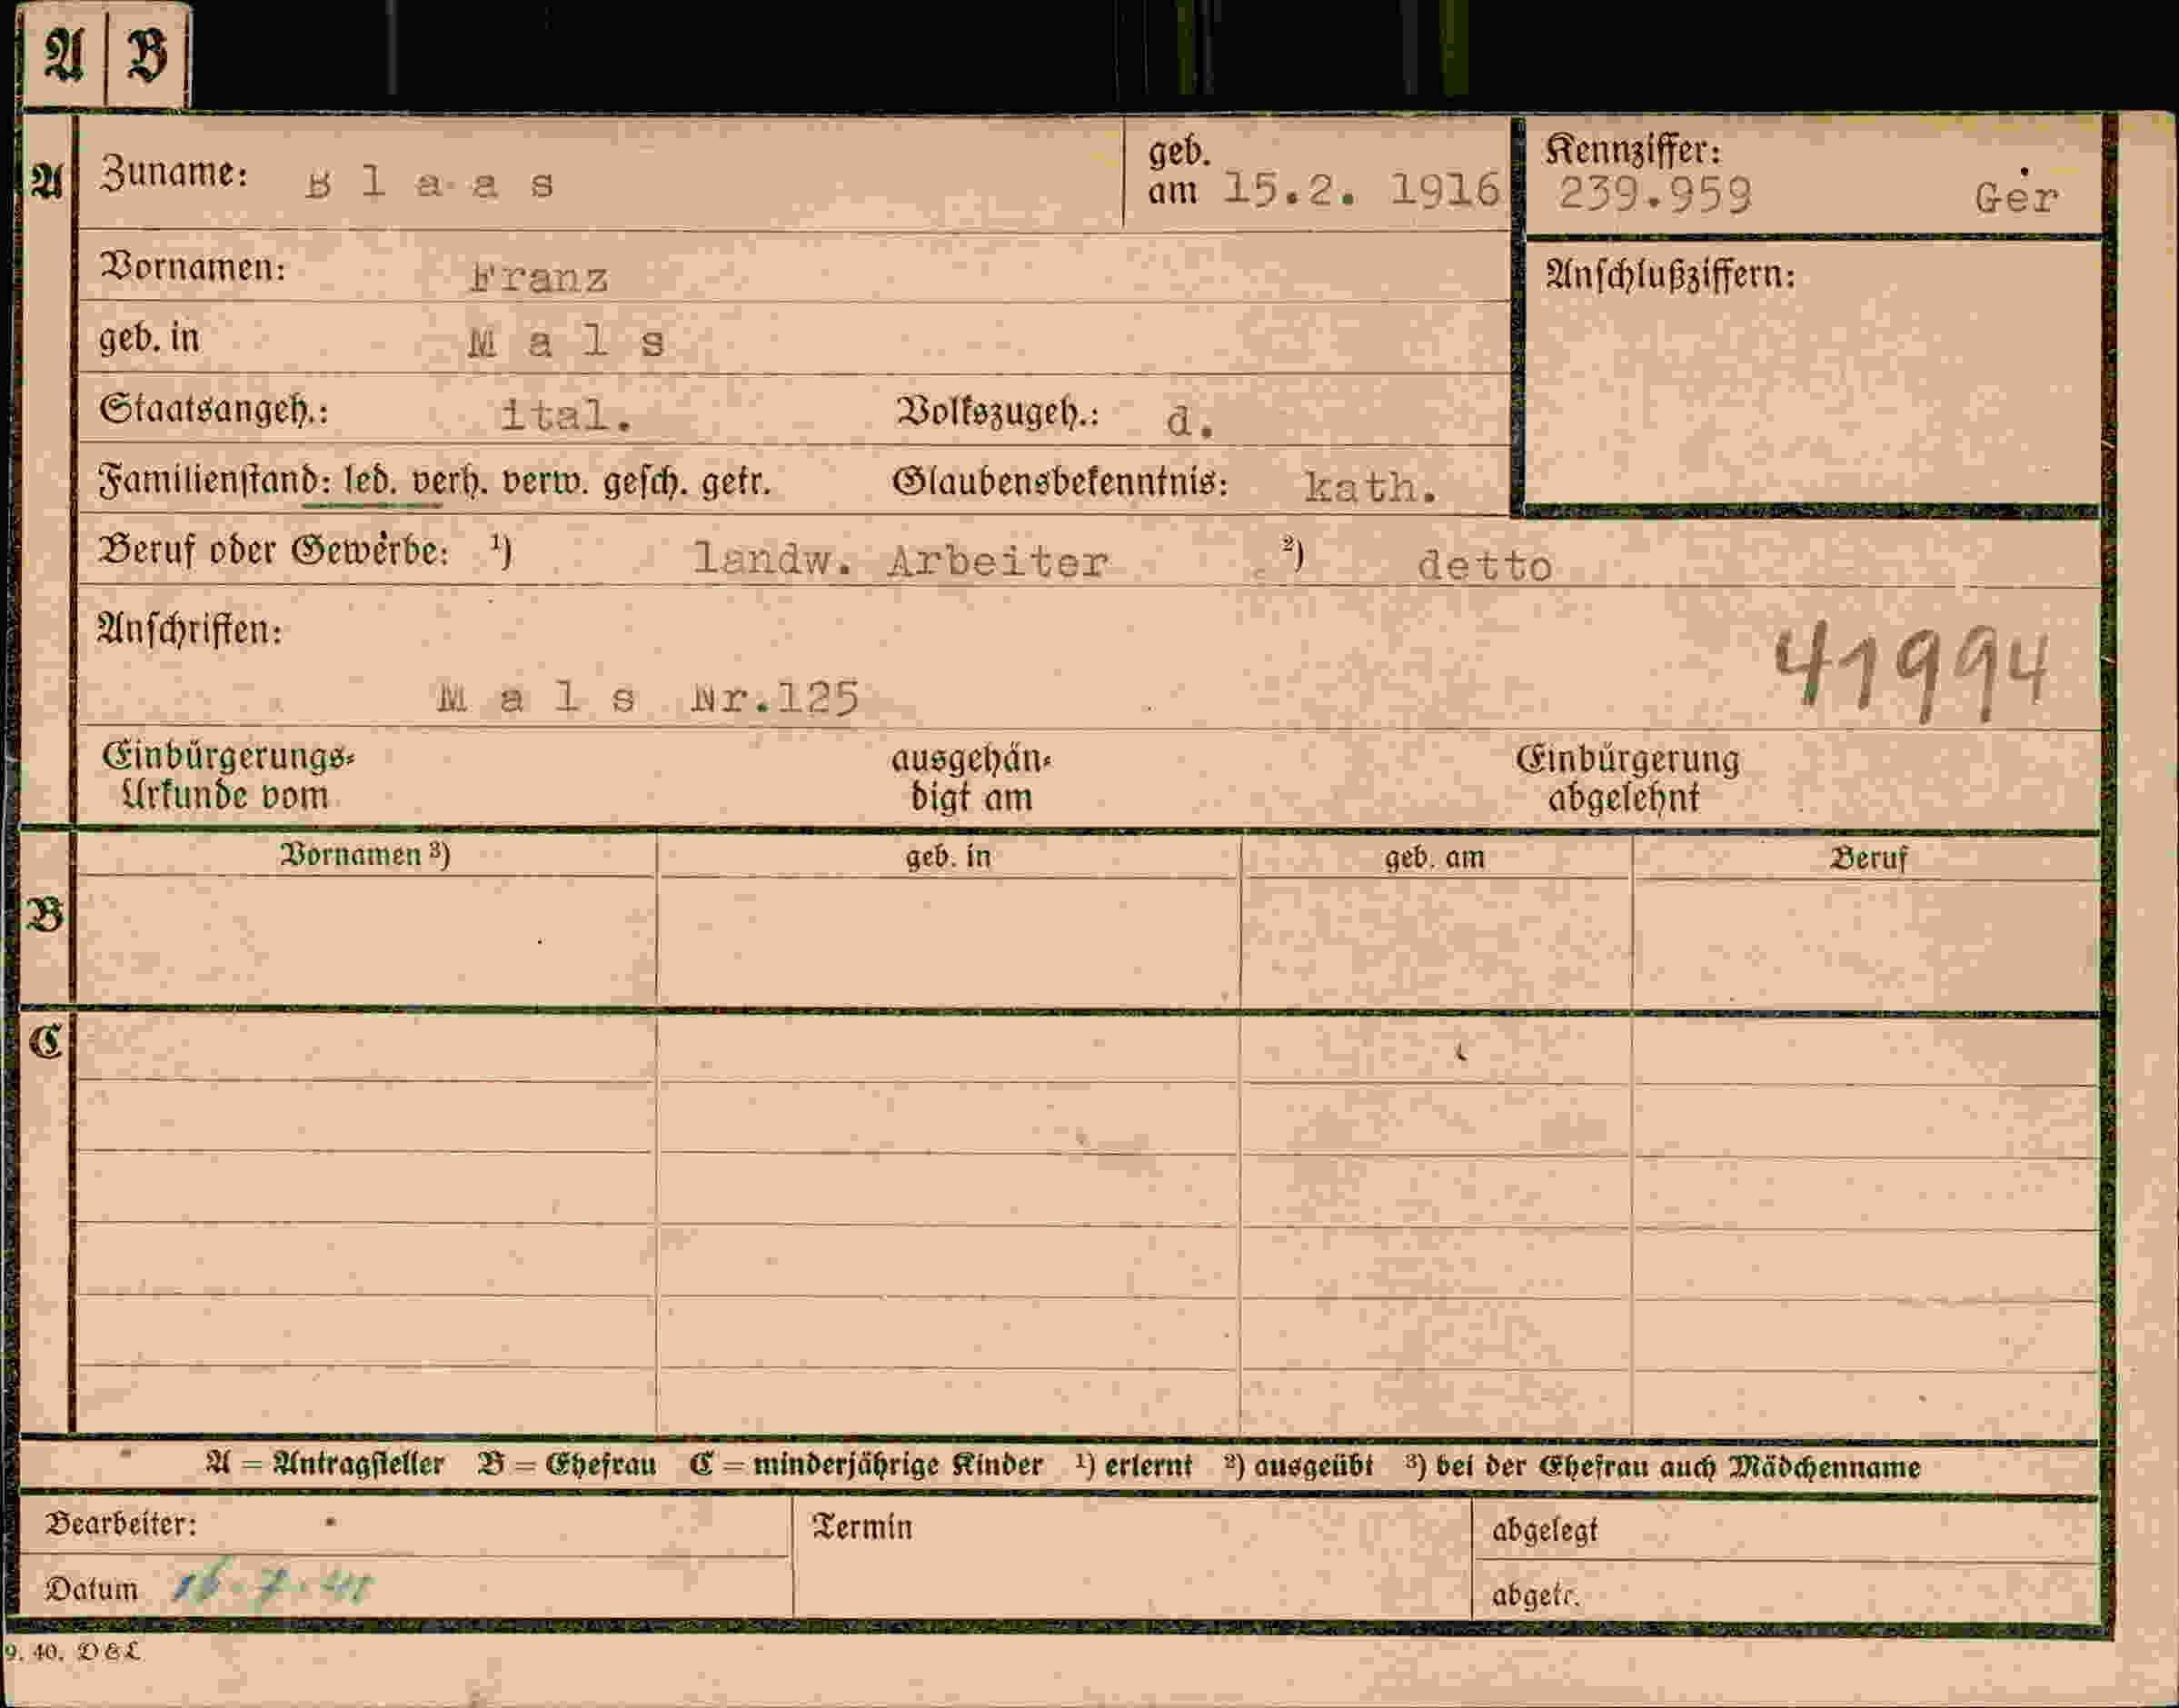 A B
A Zuname: B l a a s geb. am 15.2. 1916 Kennziffer: 239.959 Ger
Vornamen: Franz Anschlußziffern:
geb. in M a l s
Staatsangeh.: ital. Volkszugeh.: d.
Familienstand: led. verh. verw. gesch. getr. Glaubensbekenntnis: kath.
Beruf oder Gewerbe: ¹) landw. Arbeiter ²) detto
Anschriften:
41994
M a l s Nr.125
Einbürgerungs- ausgehän- Einbürgerung
Urkunde vom digt am abgelehnt
Vornamen ³) geb. in geb. am Beruf
B
C
A = Antragsteller B = Ehefrau C = minderjährige Kinder ¹) erlernt ²) ausgeübt ³) bei der Ehefrau auch Mädchenname
Bearbeiter: Termin abgelegt
Datum 16.7.41 abgetr.
9. 40. D&L